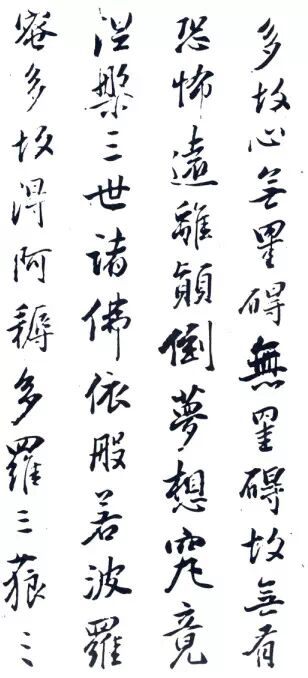 多故心無罣碍無罣碍故無有
恐怖遠離顛倒夢想究竟
涅槃三世諸佛依般若波羅
蜜多故得阿耨多羅三藐三